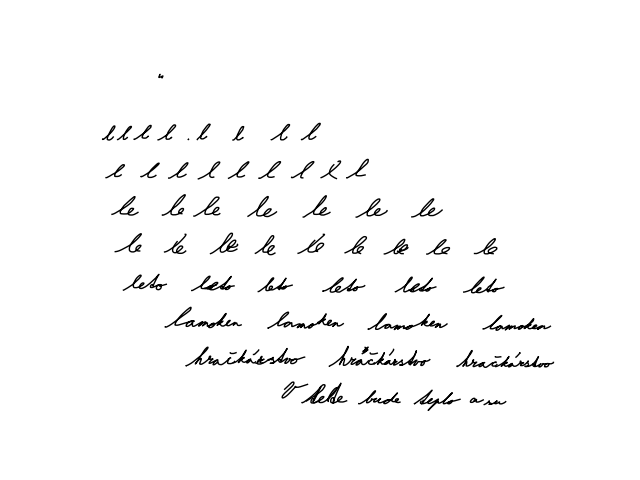 l l l l . l l l l
l l l l l l l l l
le le le le le le le
le le le le le le le le le
leto leto leto leto leto leto
lamoken lamoken lamoken lamoken
hračkárstvo hračkárstvo hračkárstvo
V bude teplo a su